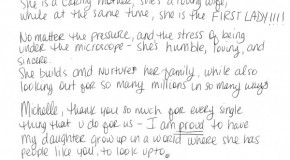 She is a caring mother, she's a loving wife,
while at the same time, she is the FIRST LADY!!!!
No matter the pressure, and the stress of being
under the microscope - she's humble, loving, and
sincere.
She builds and nurtures her family, while also
looking out for so many millions in so many ways
Michelle, thank you so much for every single
thing that u do for us - I am proud to have
my daughter grow up in a world where she has
people like you, to look up to.